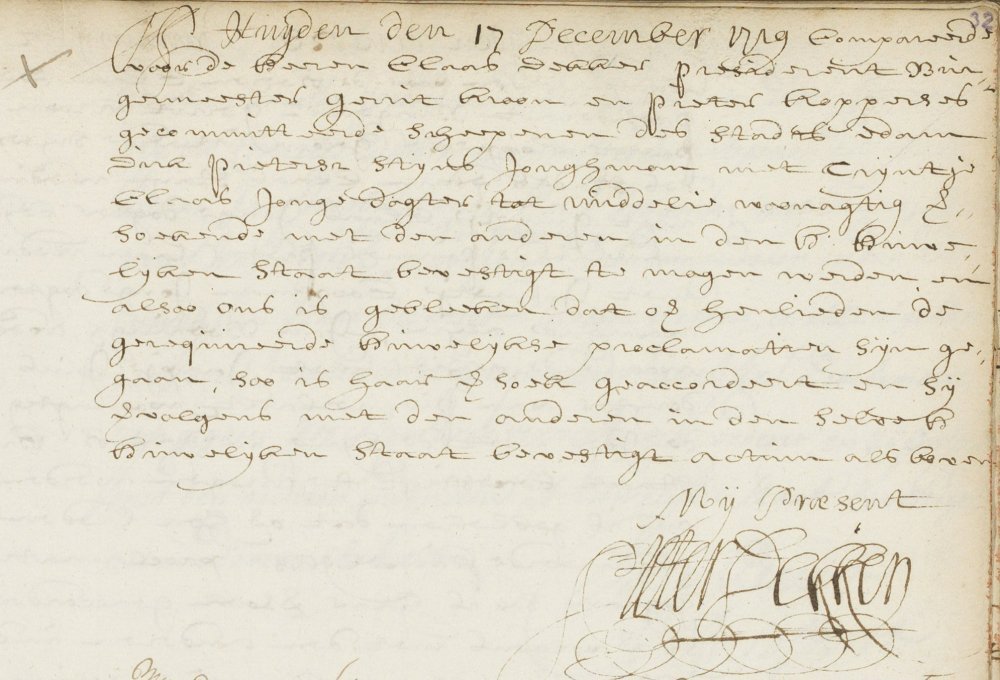 32
Huijden den 17 December 1719 Compareerd
voor de heeren Claas Dekker Presiderent Bur-
gemeester gerrit kroon en Pieter koppersES
gecommitteerde scheepenen des stadts edam
dirk Pietersz stijns Jonghman met Trijntje
Claas Jonge dogter tot middelie woonagtig
soekende met den anderen in den h: huwe-
lijken staat bevestigt te mogen werden en
alsoo ons is gebleeken dat haerlieden de
gerequireerde huwelijkse proclamatien sijn ge-
gaan, soo is haar soek geaccordeert en sij
volgens met den anderen in den selve h
huwelijken staat bevestigt actum als boven
Mij Present
Pieter Dekker